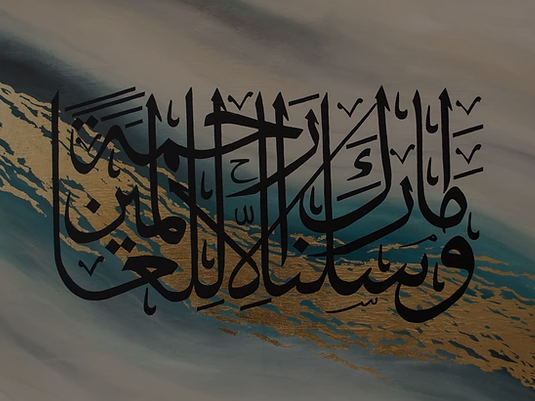 وما أرسلناك إلّا رحمةً للعالمين